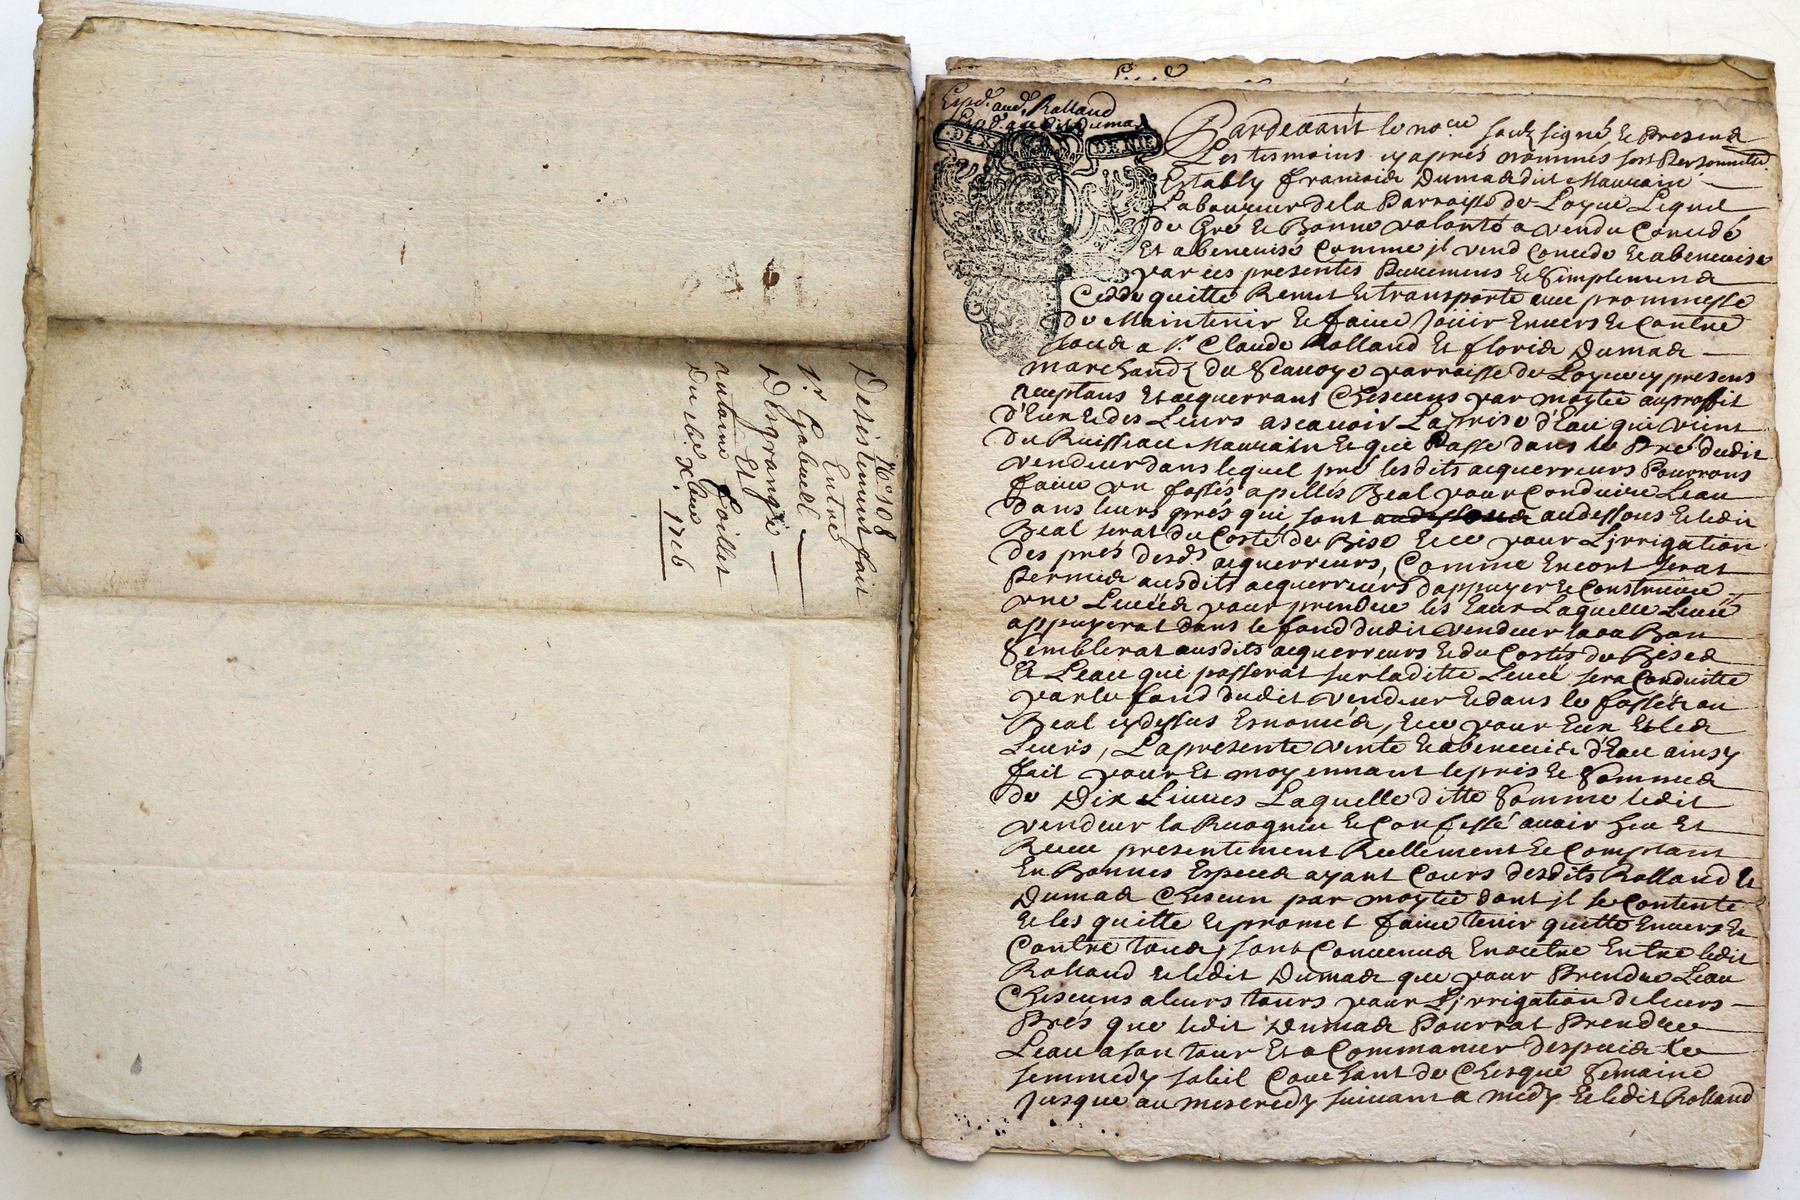 N° 108
Desistement fait
Entre
Sr Gabriell
Desgrange
Et
antoine
1716
Expd. aud. Rolland
Expd. audit Dumas
DIX DENIE
Pardevant le nore soubz signé Et Presend
Les tesmoins cy aprés nommés fust Personnelle
Estably francois Dumas dit Mauvain
Laboureur de la Parroisse de Loyue Lequel
de Gré Et Bonne volonté a vendu Concedé
Et abenevisé Comme jl vend Concede Et abenevise
par ces presentes Purement Et Simplement
Cedde quitte Remet Et transporte avec prommesse
de Maintenir Et faire Joüir Envers Et Contre
tous a Sr Claude Rolland Et floris Dumas
marchandz du parroisse de presens
aceptans Et acquerrant Chescuns par moytié au proffit
d'Eux Et des Leurs ascavoir La prise d'Eau qui vient
du Ruisseau Mauvain Et qui Passe dans le Pré dudit
vendeur dans lequel pré lesdits acquerreurs Pourrons
faire vn fossés apellés Beal pour Conduire Leau
Dans leurs prés qui sont audessous Et ledit
Beal serat du Costé de Bise Et ce pour L'jrrigation
des prés desds acquerreurs, Comme Encort serat
Permis ausdits acquerreurs d'appuyer Et Construire
vne Levée pour prendre les Eaux Laquelle Levée
appuyerat dans le fond dudit vendeur la ou Bon
Semblerat ausdits acquerreurs Et du Costés de Bise
Et Leau qui passerat sur laditte Levée sera Conduitte
par le fond dudit vendeur Et dans le fossés ou
Beal cy dessus Et ce pour Eux Et les
Leurs, La presente vente Et abenevis d'Eau ainsy
fait pour Et moyennant le pris Et Somme
de Dix Livres Laquelle ditte Somme ledit
vendeur la Recognue Et Confessé avoir heu Et
Receu presentement Reellement Et Comptant
En Bonnes Especes ayant Cours desdits Rolland Et
Dumas Chescun par moytié dont jl se Contente
Et les quitte Et promet faire tenir quitte Envers Et
Contre tous, sont Convenus En oultre Entre ledit
Rolland Et ledit Dumas que pour Prendre Leau
Chescuns a leurs tours pour L'jrrigation de leurs
Prés que ledit Dumas Pourrat Prendre
Leau a son tour Et a Commancer despuis le
semmedy soleil Couchant de Chesque Semaine
Jusque au mescredy suivant a midy Et ledit Rolland